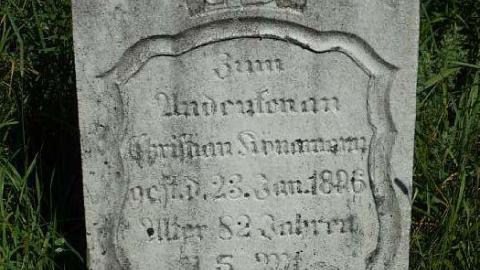 Zum
Andenken an
Christian
gest. d. 23. Jan. 1896
Alter 82 Jahren